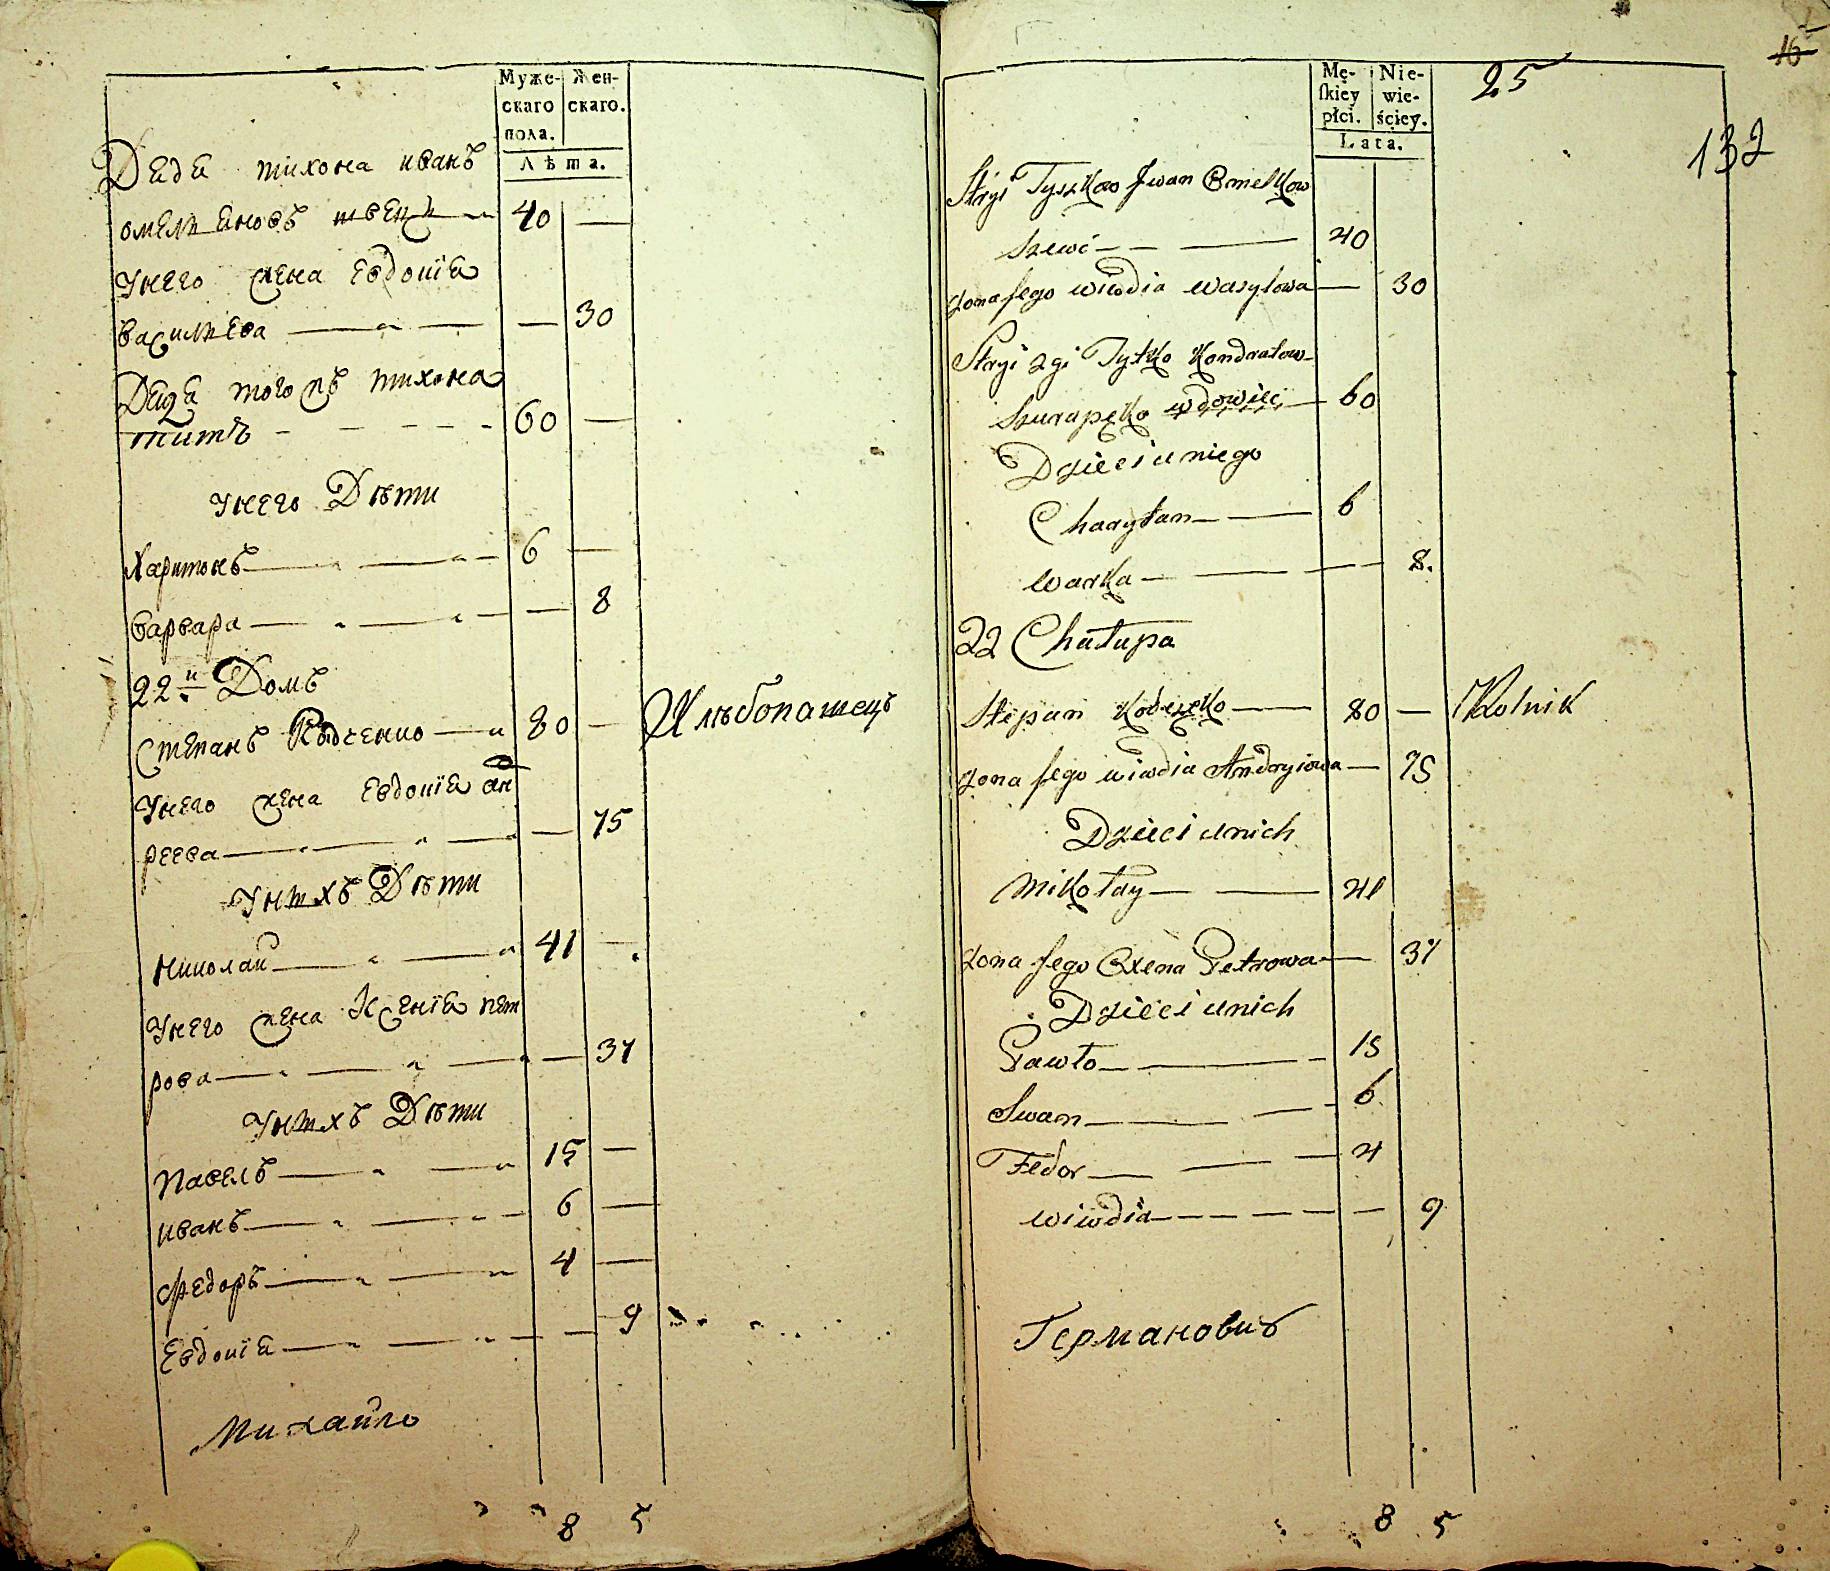 Муже-
скаго
пола.
Жен-
скаго.
Лѣта.
Дядя тихона иванъ
омельяновъ швецъ 40 —
Унего жена Евдокїя
васильева — 30
Дядя тогожъ тихона
титъ 60 —
Унего Дѣти
Харитонъ 6 —
варвара — 8
22й Домъ
Степанъ 80 — Хлѣбопашецъ
Унего жена Евдокїя ан
реева — 75
Унихъ Дѣти
николай 41 —
Унего жена Ксенїя пет
рова — 37
Унихъ Дѣти
павелъ 15 —
иванъ 6 —
федоръ 4 —
Евдокїя — 9
Михайло
8 5
16
25
132
Mę-
ſkiey
płci.
Nie-
wie-
ściey.
Lata.
Stryi Tyszkow Jwan Omelkow
szewc 40
żona jego wiwdia wasylowa — 30
Stryi 2gi Tytko Kondratow
wdowiec 60
Dzieci u niego
Charytan 6
warka — 8.
22 Chałupa
Stepan 80 — Rolnik
żona jego wiwdia Andryiowa — 75
Dzieci unich
Mikołay 41
żona jego Oxena Petrowa — 37
Dzieci unich
Pawło 15
Jwan 6
Fedor 4
wiwdia — 9
Германовичъ
8 5